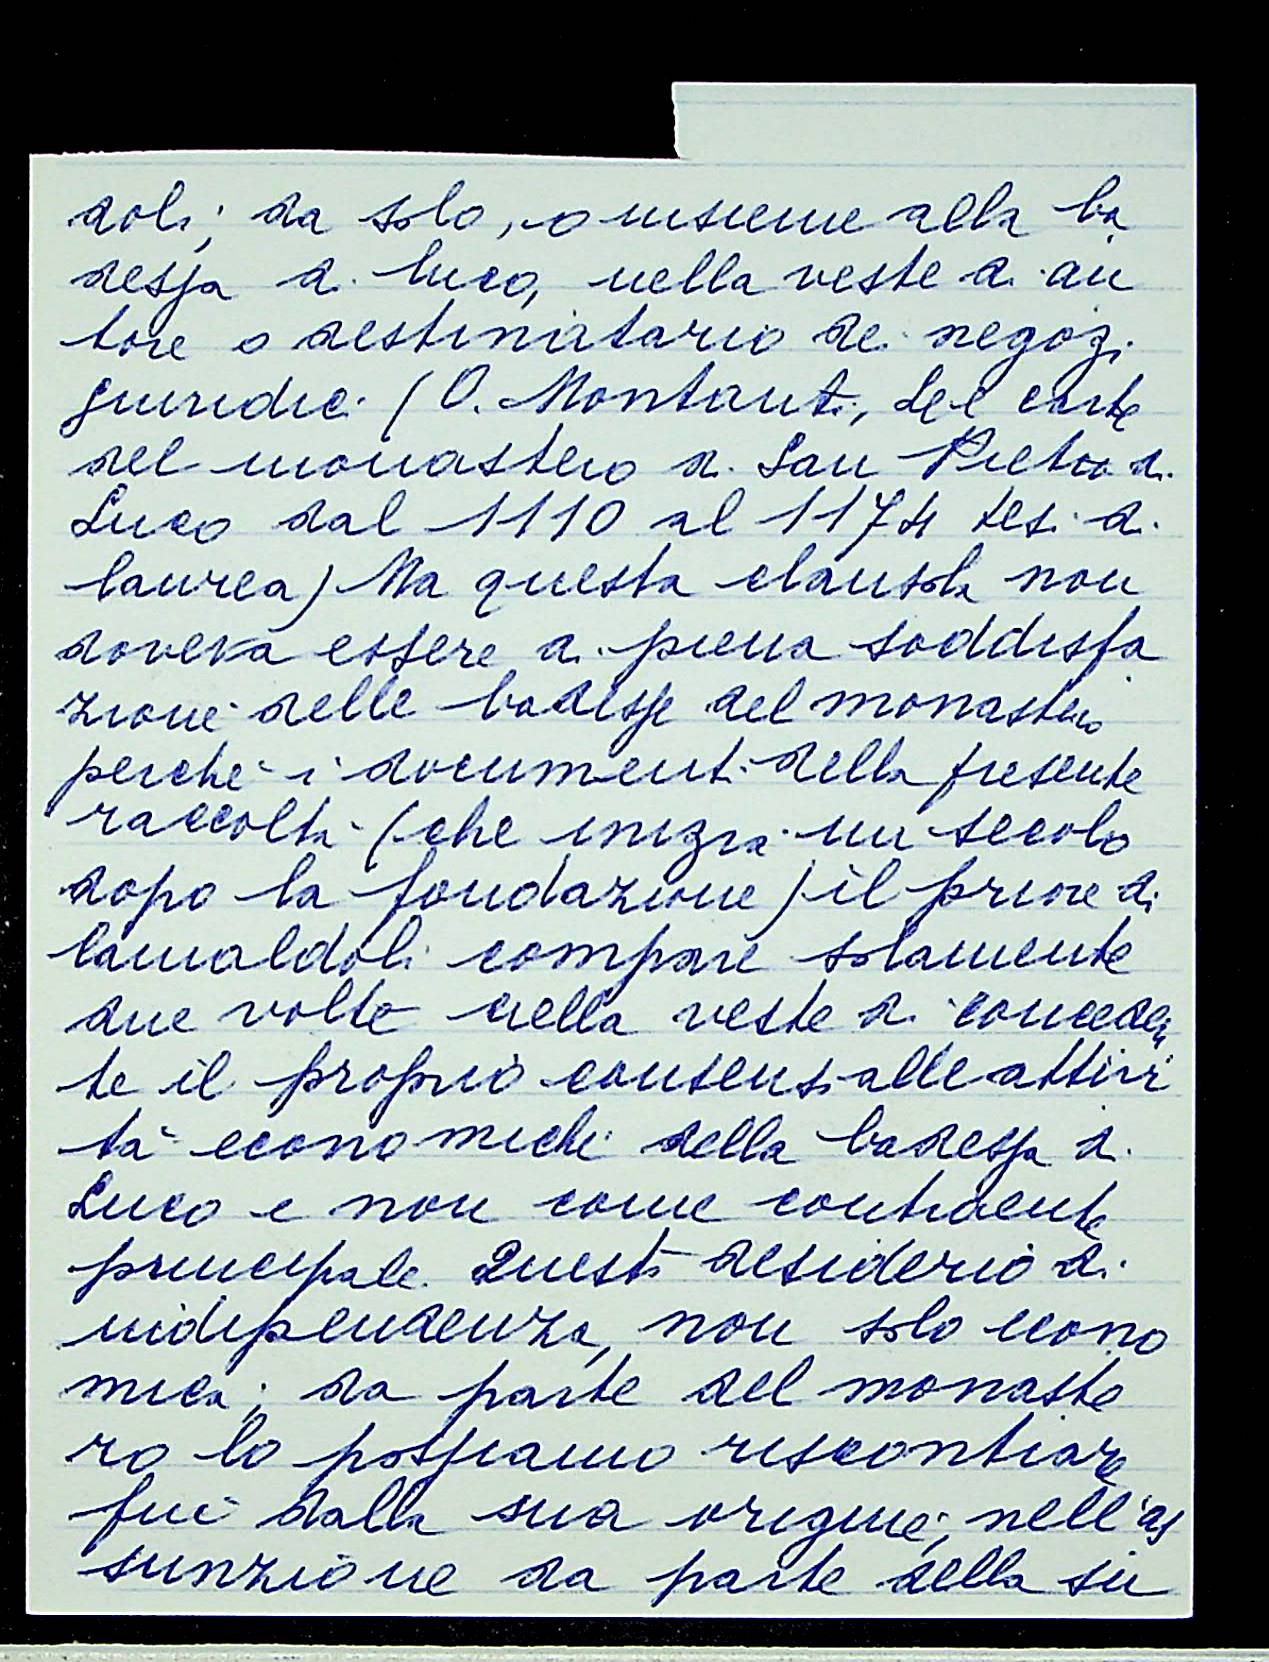 doli, da solo, o insieme alla ba
dessa di Luco, nella veste di au
tore o destinatario dei negozi
giuridici (O. Montanti, Le carte
del monastero di San Pietro di
Luco dal 1110 al 1174 tesi di
laurea) Ma questa clausola non
doveva essere di piena soddisfa
zione delle badesse del monastero
perché i documenti della presente
raccolta (che inizia un secolo
dopo la fondazione) il priore di
Camaldoli compare solamente
due volte nella veste di conceden
te il proprio consenso alle attivi
tà economiche della badessa di
Luco e non come contraente
principale. Questo desiderio di
indipendenza, non solo econo
mica, da parte del monaste
ro lo possiamo riscontrare
fin dalla sua origine, nell'as
sunzione da parte della su